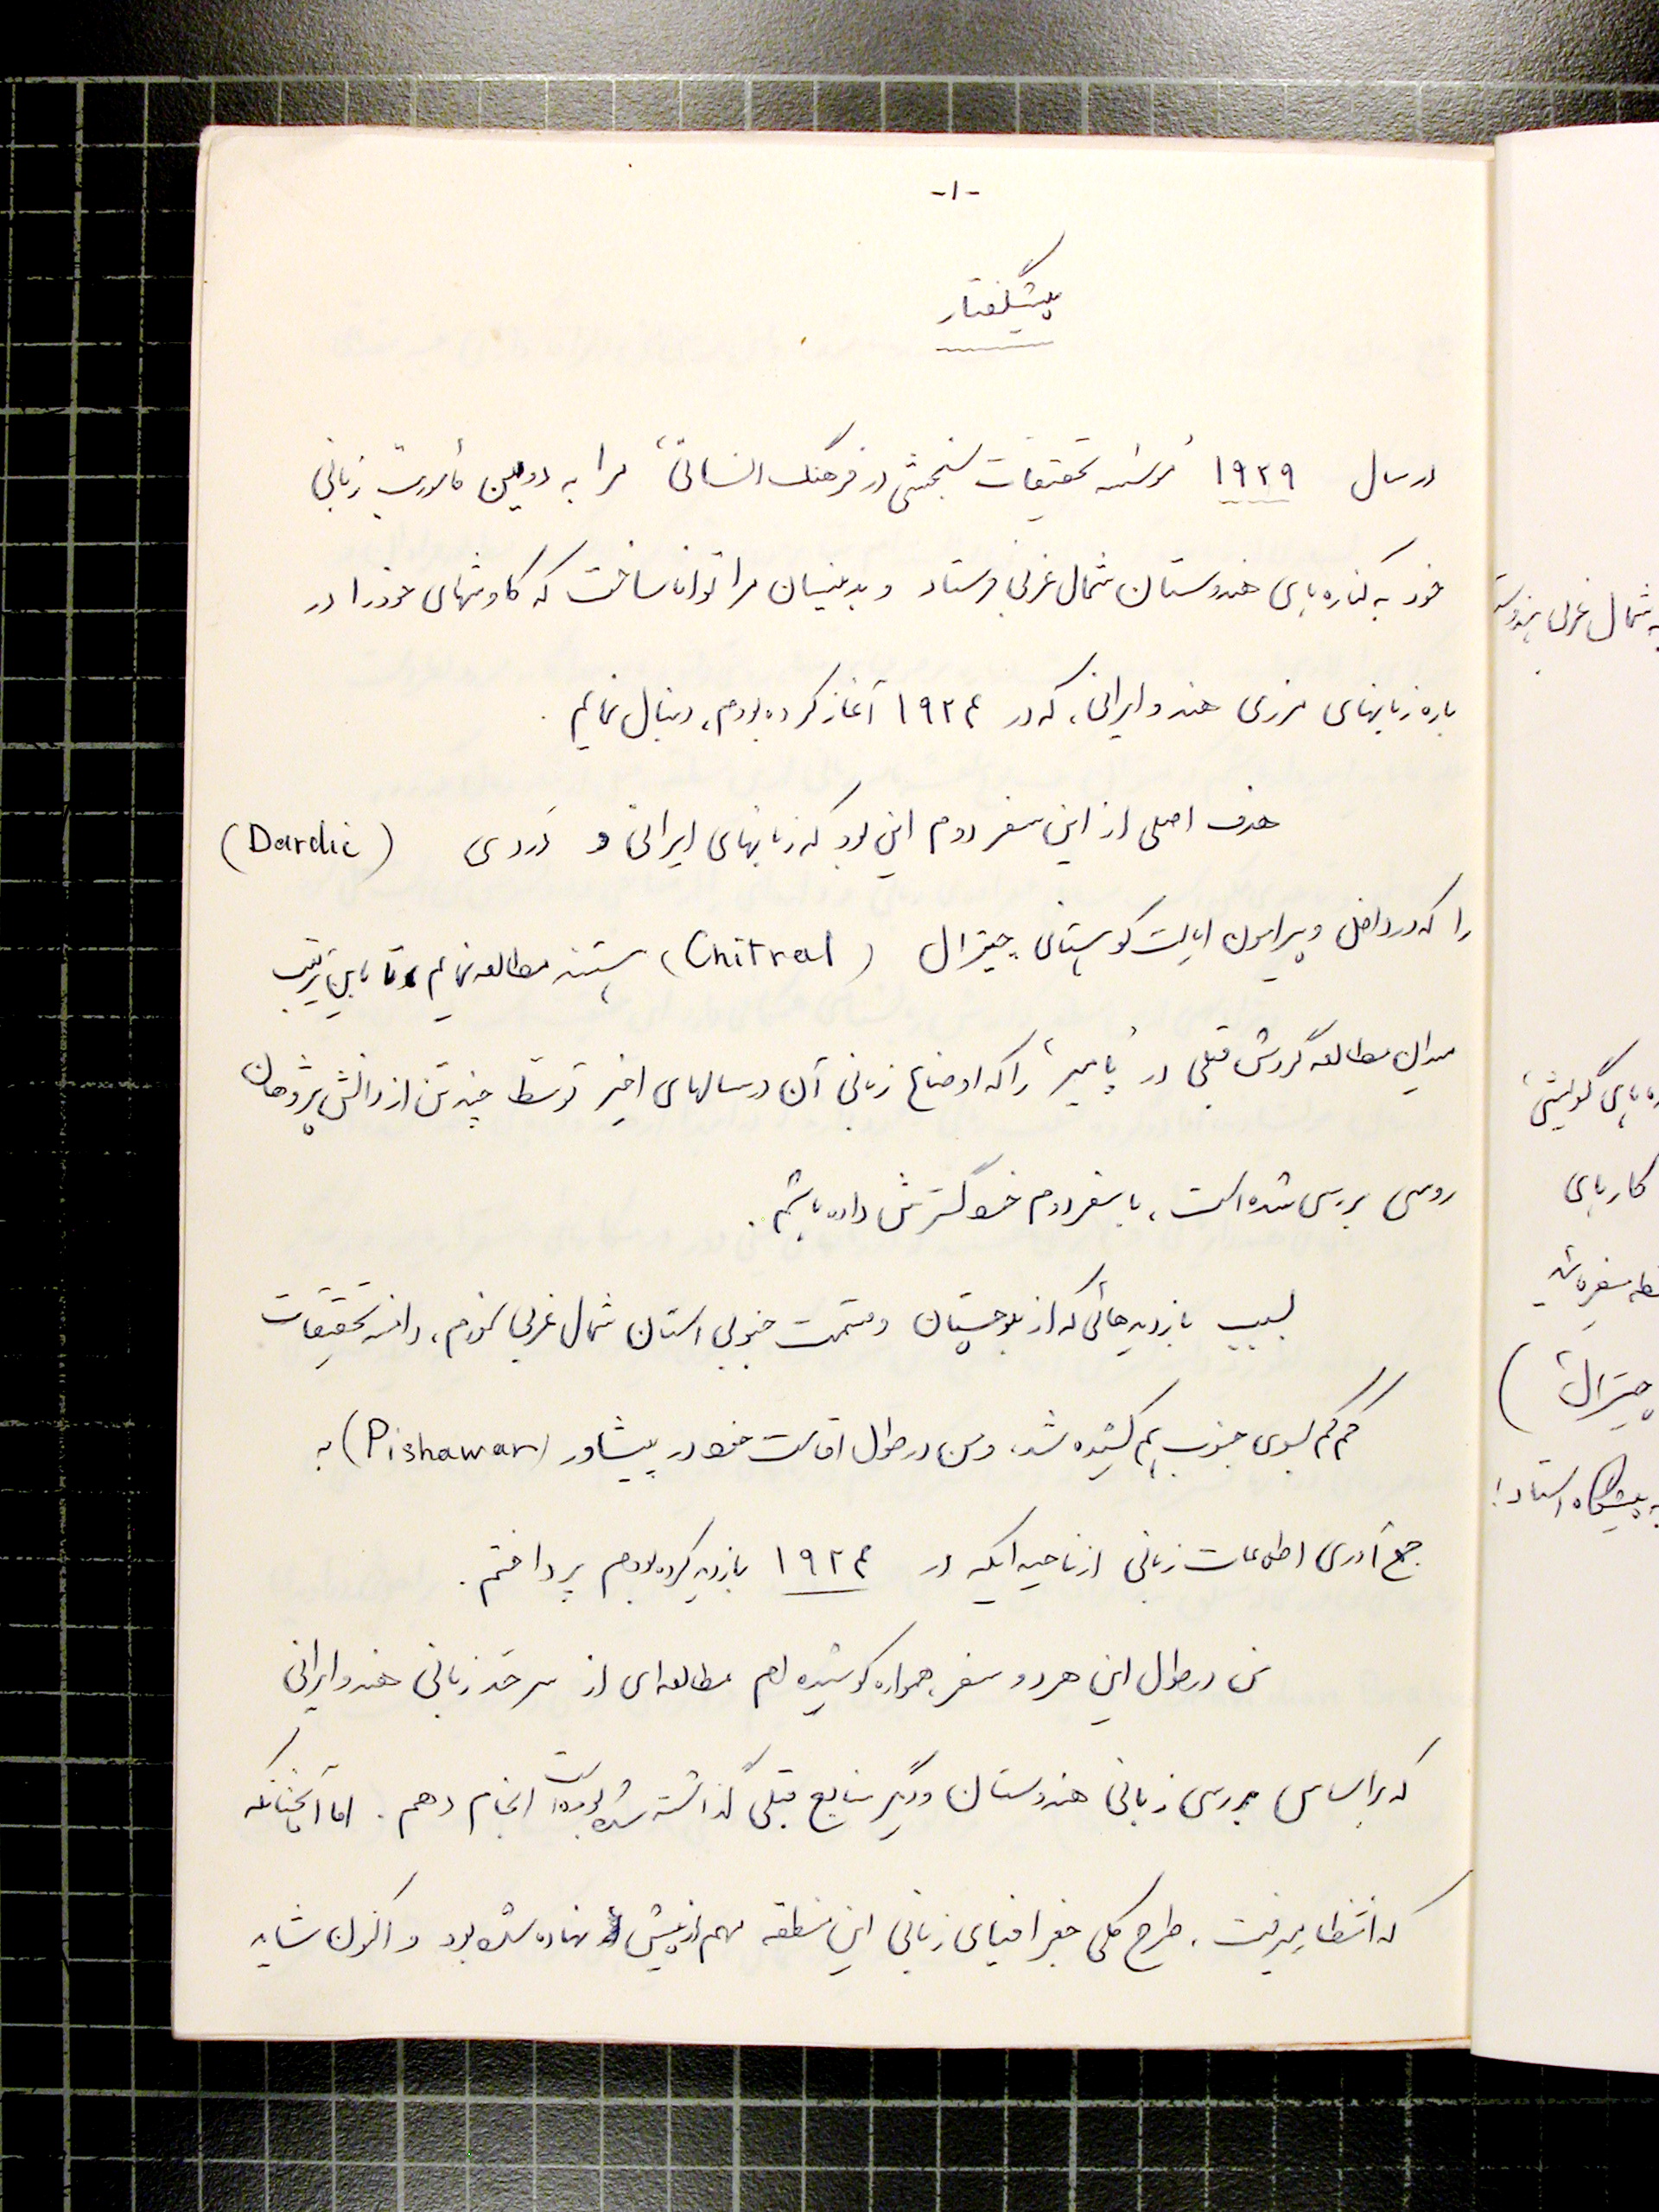 -۱-
پیشگفتار
در سال ۱۹۲۹ "موسسه تحقیقات سنجشی در فرهنگ انسانی" مرا به دومین مأموریت زبانی
خود به کناره‌های هندوستان شمال غربی فرستاد و بدینسان مرا توانا ساخت که کاوشهای خود را در
باره زبانهای مرزی هند و ایرانی، که در ۱۹۲۴ آغاز کرده بودم، دنبال نمایم.
هدف اصلی از این سفر دوم این بود که زبانهای ایرانی و دَردی (Dardic)
را که در داخل و پیرامون ایالت کوهستانی چیترال (Chitral) هستند مطالعه نمایم تا باین ترتیب
میدان مطالعه گردش قبلی در "پامیر" را که اوضاع زبانی آن در سالهای اخیر توسط چند تن از دانش پژوهان
روسی بررسی شده است، با سفر دوم خود گسترش داده باشم.
بسبب بازدیدهائی که از بلوچستان و قسمت جنوبی استان شمال غربی نمودم، دامنه تحقیقات
کم کم بسوی جنوب هم کشیده شد، و من در طول اقامت خود در پیشاور (Pishawar) به
جمع آوری اطلاعات زبانی از ناحیه ایکه در ۱۹۲۴ بازدید کرده بودم پرداختم.
من در طول این هر دو سفر، همواره کوشیده‌ام مطالعه‌ای از سرحد زبانی هند و ایرانی
که بر اساس بررسی زبانی هندوستان و دیگر منابع قبلی گذاشته شده است انجام دهم. اما آنچنانکه
که انتظار میرفت، طرح کلی جغرافیای زبانی این منطقه مهم از پیش نهاده شده بود و اکنون شاید
به شمال غربی هندوستا
های گویشی"
کارهای
چیترال" )
به پیشگاه استاد: